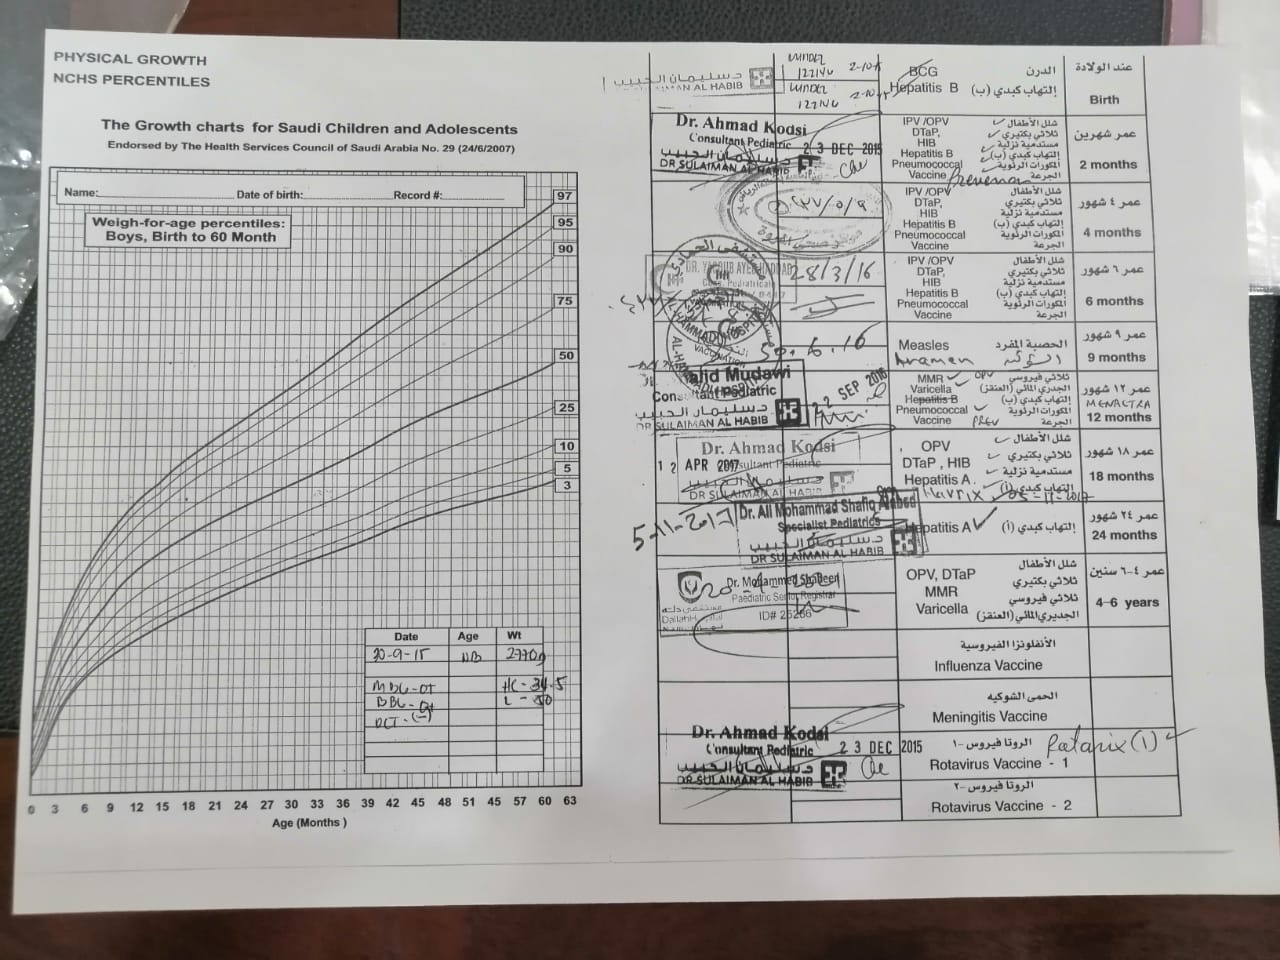 PHYSICAL GROWTH
NCHS PERCENTILES
The Growth charts for Saudi Children and Adolescents
Endorsed by The Health Services Council of Saudi Arabia No. 29 (24/6/2007)
Name: Date of birth: Record #:
Weigh-for-age percentiles:
Boys, Birth to 60 Month
97
95
90
75
50
25
10
5
3
Date Age Wt
30-9-15 NB 2770g
HC - 34.5
L - 50
0 3 6 9 12 15 18 21 24 27 30 33 36 39 42 45 48 51 45 57 60 63
Age (Months )
د سليمان الحبيب
AL HABIB
UNDER
122140
UNDER
122140
BCG الدرن
Hepatitis B إلتهاب كبدي (ب)
عند الولادة
Birth
Dr. Ahmad Kodsi
Consultant Pediatric
DR SULAIMAN AL HABIB
23 DEC 2015
IPV /OPV شلل الأطفال
DTaP, ثلاثي بكتيري
HIB مستدمية نزلية
Hepatitis B إلتهاب كبدي (ب)
Pneumococcal المكورات الرئوية
Vaccine الجرعة
Prevenar
عمر شهرين
2 months
IPV /OPV شلل الأطفال
DTaP, ثلاثي بكتيري
HIB مستدمية نزلية
Hepatitis B إلتهاب كبدي (ب)
Pneumococcal المكورات الرئوية
Vaccine الجرعة
عمر ٤ شهور
4 months
28/3/16
IPV /OPV شلل الأطفال
DTaP, ثلاثي بكتيري
HIB مستدمية نزلية
Hepatitis B إلتهاب كبدي (ب)
Pneumococcal المكورات الرئوية
Vaccine الجرعة
عمر ٦ شهور
6 months
30.6.16
Measles الحصبة المفرد
عمر ٩ شهور
9 months
Mudawi
Consultant Pediatric
د سليمان الحبيب
DR SULAIMAN AL HABIB
22 SEP 2016
MMR OPV ثلاثي فيروسي
Varicella الجدري المائي (العنقز)
Hepatitis B إلتهاب كبدي (ب)
Pneumococcal المكورات الرئوية
Vaccine PREV الجرعة
عمر ١٢ شهور
MENACTRA
12 months
Dr. Ahmad Kodsi
Consultant Pediatric
12 APR 2017
DR SULAIMAN AL HABIB
OPV شلل الأطفال
DTaP , HIB ثلاثي بكتيري
مستدمية نزلية
Hepatitis A إلتهاب كبدي (أ)
Havrix 05-11-2017
عمر ١٨ شهور
18 months
5-11-2017
Dr. Ali Mohammad Shafiq
Specialist Pediatrics
د سليمان الحبيب
DR SULAIMAN AL HABIB
Hepatitis A إلتهاب كبدي (أ)
عمر ٢٤ شهور
24 months
Dr. Mohammed Shaheen
Paediatric Senior Registrar
ID# 25266
OPV, DTaP شلل الأطفال
MMR ثلاثي بكتيري
Varicella ثلاثي فيروسي
الجديري المائي (العنقز)
عمر ٤-٦ سنين
4–6 years
الأنفلونزا الفيروسية
Influenza Vaccine
الحمى الشوكيه
Meningitis Vaccine
Dr. Ahmad Kodsi
Consultant Pediatric
د سليمان الحبيب
DR SULAIMAN AL HABIB
23 DEC 2015
الروتا فيروس -١
Rotavirus Vaccine - 1
Rotarix (1)
الروتا فيروس -٢
Rotavirus Vaccine - 2